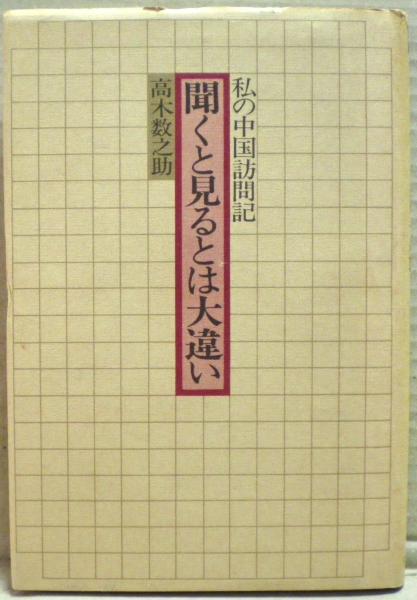 私の中国訪問記
聞くと見るとは大違い
高木数之助